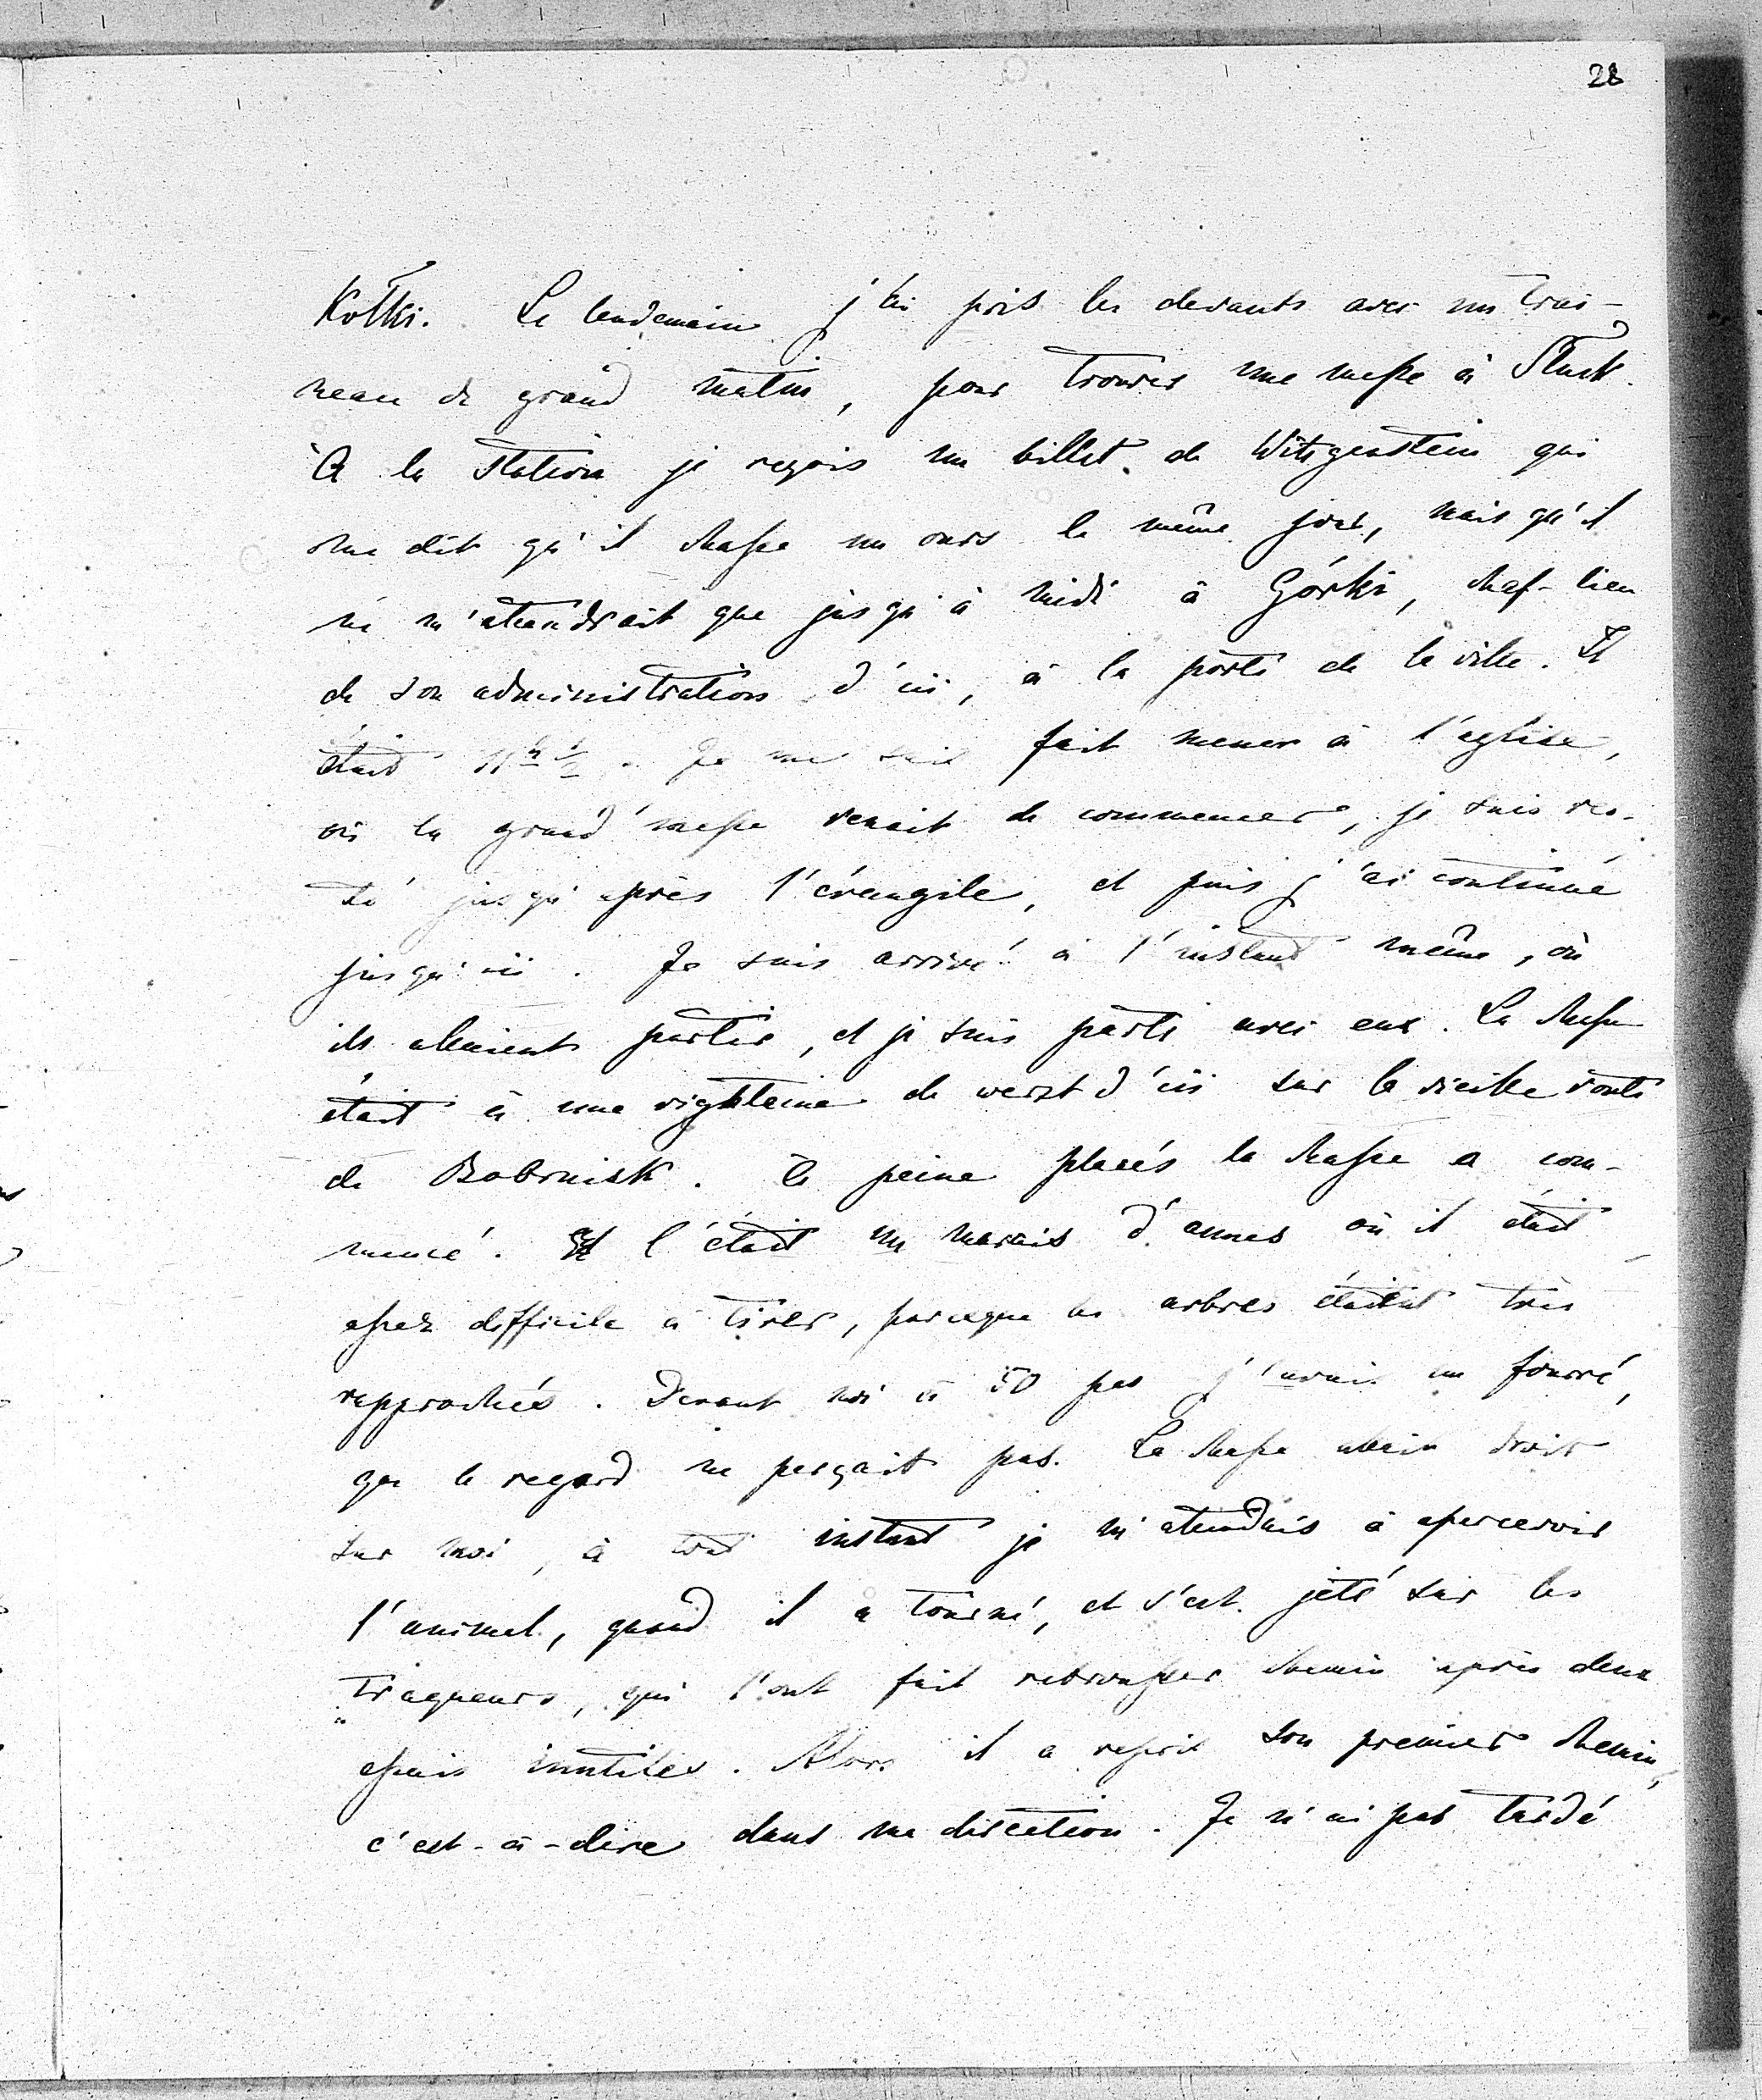 28
Kołki. Le lendemain j'ai pris les devants avec un trai-
neau de grand matin, pour trouver une messe à Słuck.
A la station je reçois un billet de Witgenstein qui
me dit qu'il chasse un ours le même jour, mais qu'il
ne m'atendrait que jusqu'à midi à Górki, chef-lieu
de son administration d'ici, à la porte de la ville. Il
était 11 h ½. Je me suis fait mener à l'église,
où la grand'messe venait de commencer, je suis res-
té jusqu'après l'évangile, et puis j'ai continué
jusqu'ici. Je suis arrivé à l'instant même, où
ils allaient partir, et je suis parti avec eux. La chasse
était à une vigntaine de werst d'ici sur la vieille route
de Bobruisk. A peine placés la chasse a com-
mencé. C'était un marais d'aunes où il était
assez difficile à tirer, parceque les arbres étaient très
rapprochés. Devant moi à 50 pas j'avais un fourré,
que le regard ne perçait pas. La chasse allait droit
sur moi, à tout instant je m'atendais à apercevoir
l'animal, quand il a tourné, et s'est jeté sur les
traqueurs, qui l'ont fait rebrousser chemin après deux
essais inutiles. Alors il a repris son premier chemin,
c'est-à-dire dans ma direction. Je n'ai pas tardé